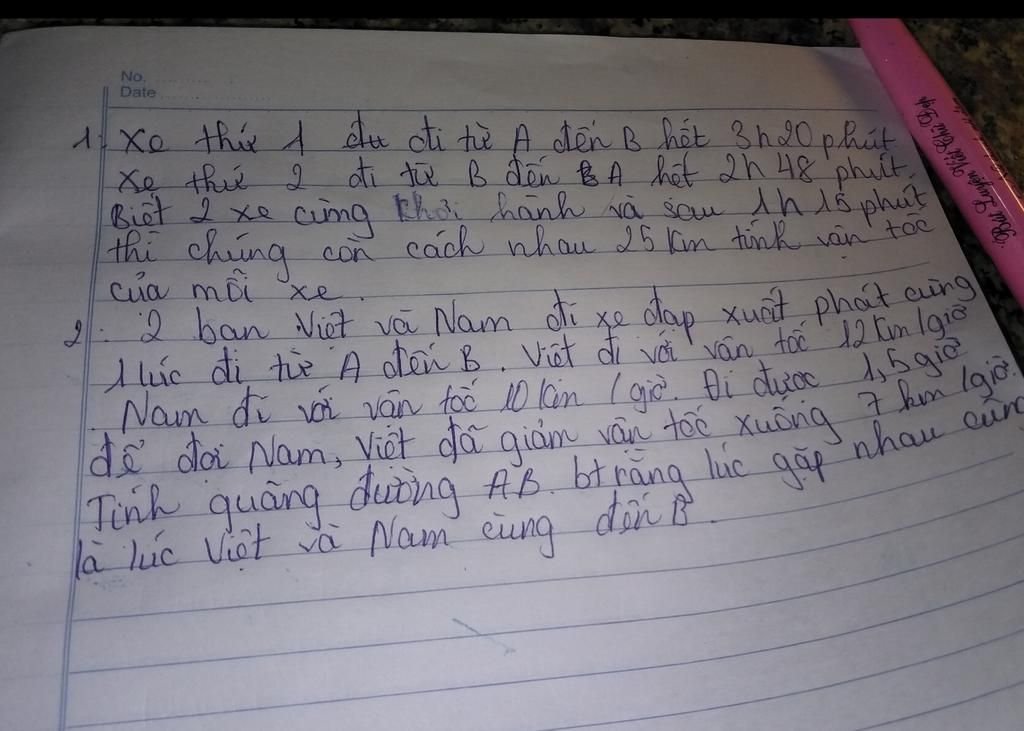 No.
Date
1. Xe thứ 1 đi từ A đến B hết 3h20 phút
Xe thứ 2 đi từ B đến A hết 2h 48 phút.
Biết 2 xe cùng khởi hành và sau 1h 15 phút
thì chúng còn cách nhau 25 km tính vận tốc
của mỗi xe.
2. 2 bạn Việt và Nam đi xe đạp xuất phát cùng
1 lúc đi từ A đến B. Việt đi với vận tốc 12 km/giờ
Nam đi với vận tốc 10 km/giờ. Đi được 1,5 giờ
để đợi Nam, Việt đã giảm vận tốc xuống 7 km/giờ.
Tính quãng đường AB. bt rằng lúc gặp nhau cũng
là lúc Việt và Nam cùng đến B.
Bút Luyện Viết Chữ Đẹp